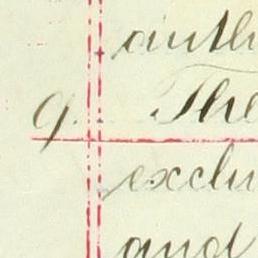 9. The
exclu
and